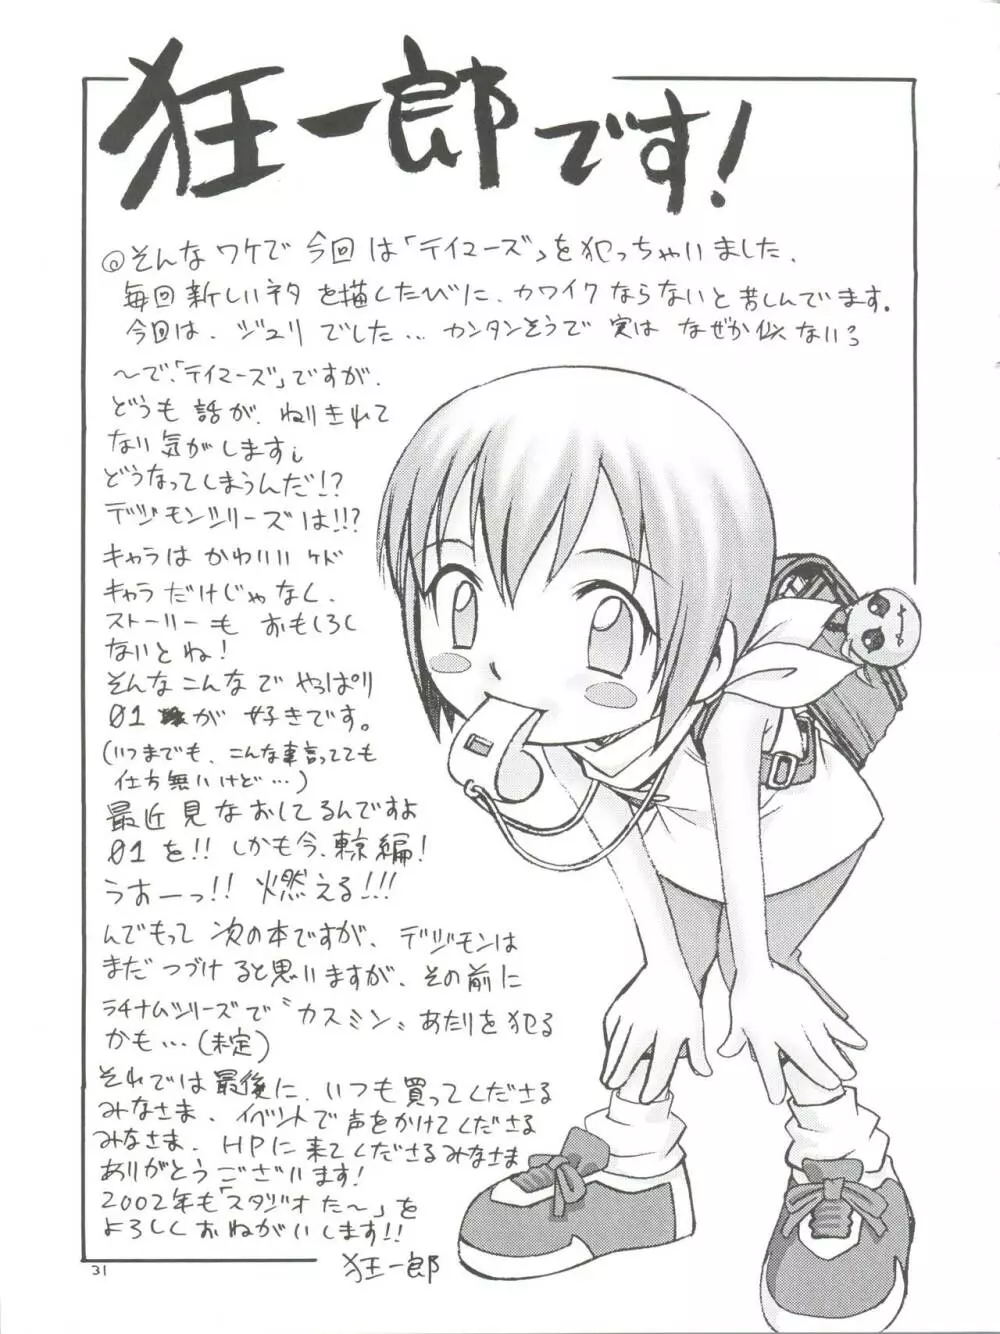 狂一郎です!
@そんなワケで今回は「テイマーズ」を犯っちゃいました.
毎回新しいネタを描くたびに、カワイクならないと苦しんでます。
今回は、ジュリでした... カンタンそうで実はなぜか似ない
〜で、「テイマーズ」ですが、
どうも話が、ねりきれて
ない気がします
どうなってしまうんだ!?
デジモンシリーズは!!?
キャラはかわいいケド
キャラだけじゃなく、
ストーリーもおもしろく
ないとね!
そんなこんなでやっぱり
01が好きです。
(いつまでも、こんな事言ってても
仕方無いけど…)
最近見なおしてるんですよ
01を!! しかも今、東京編!
うおーっ!! 燃える!!!
んでもって次の本ですが、デジモンは
まだつづけると思いますが、その前に
ラチナムシリーズで〝カスミン〟あたりを犯る
かも…(未定)
それでは最後に、いつも買ってくださる
みなさま、イベントで声をかけてくださる
みなさま、HPに来てくださるみなさま
ありがとうございます!
2002年も「スタジオた〜」を
よろしくおねがいします!!
狂一郎
31